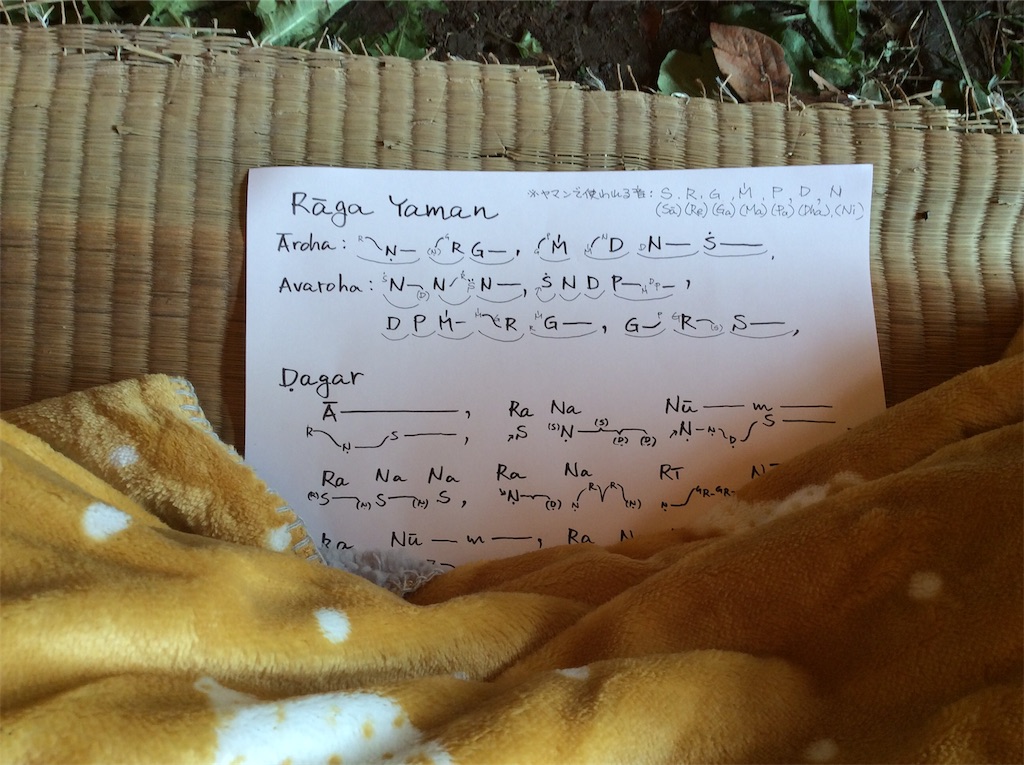 Rāga Yaman
※ヤマンで使われる音: S, R, G, Ḿ, P, D, N
(Sa) (Re) (Ga) (Ma) (Pa) (Dha) (Ni)
Āroha: R Ṇ— (Ṇ) G R G—, G P Ḿ Ḿ N D D N— Ṡ—,
Avaroha: Ṡ N (D) N Ṙ Ṡ N—, Ṡ N D P— N D P—,
D P Ḿ— Ḿ G R R Ḿ G—, G— P G R (S) S—,
Ḍagar
Ā—, Ra Na Nū — m —
R Ṇ S—, S (S) Ṇ (S) (Ḍ) (Ḍ) Ṇ — Ṇ Ḍ S—
Ra Na Na Ra Na RĪ
(Ṇ) S— (Ṇ) S— (Ṇ) S, Ṇ— (Ḍ) Ṇ R R (Ṇ) Ṇ GR-GR-
Ra Nū — m —, Ra